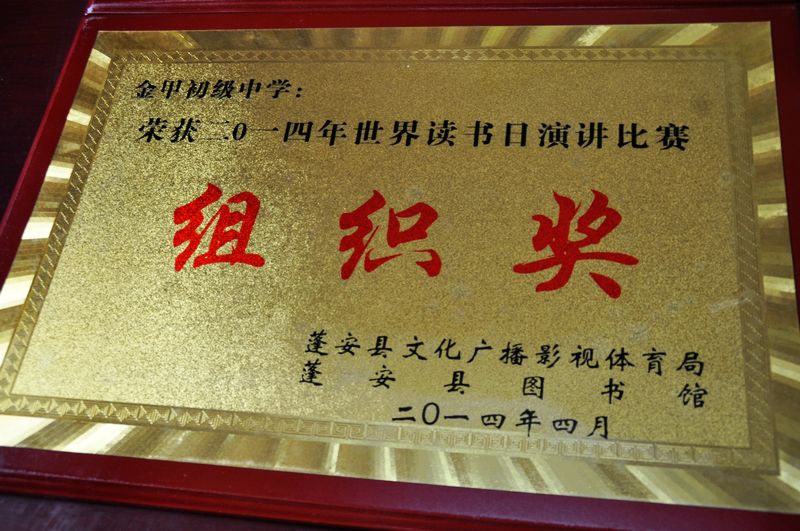 金甲初级中学：
荣获二0一四年世界读书日演讲比赛
组织奖
蓬安县文化广播影视体育局
蓬安县图书馆
二0一四年四月